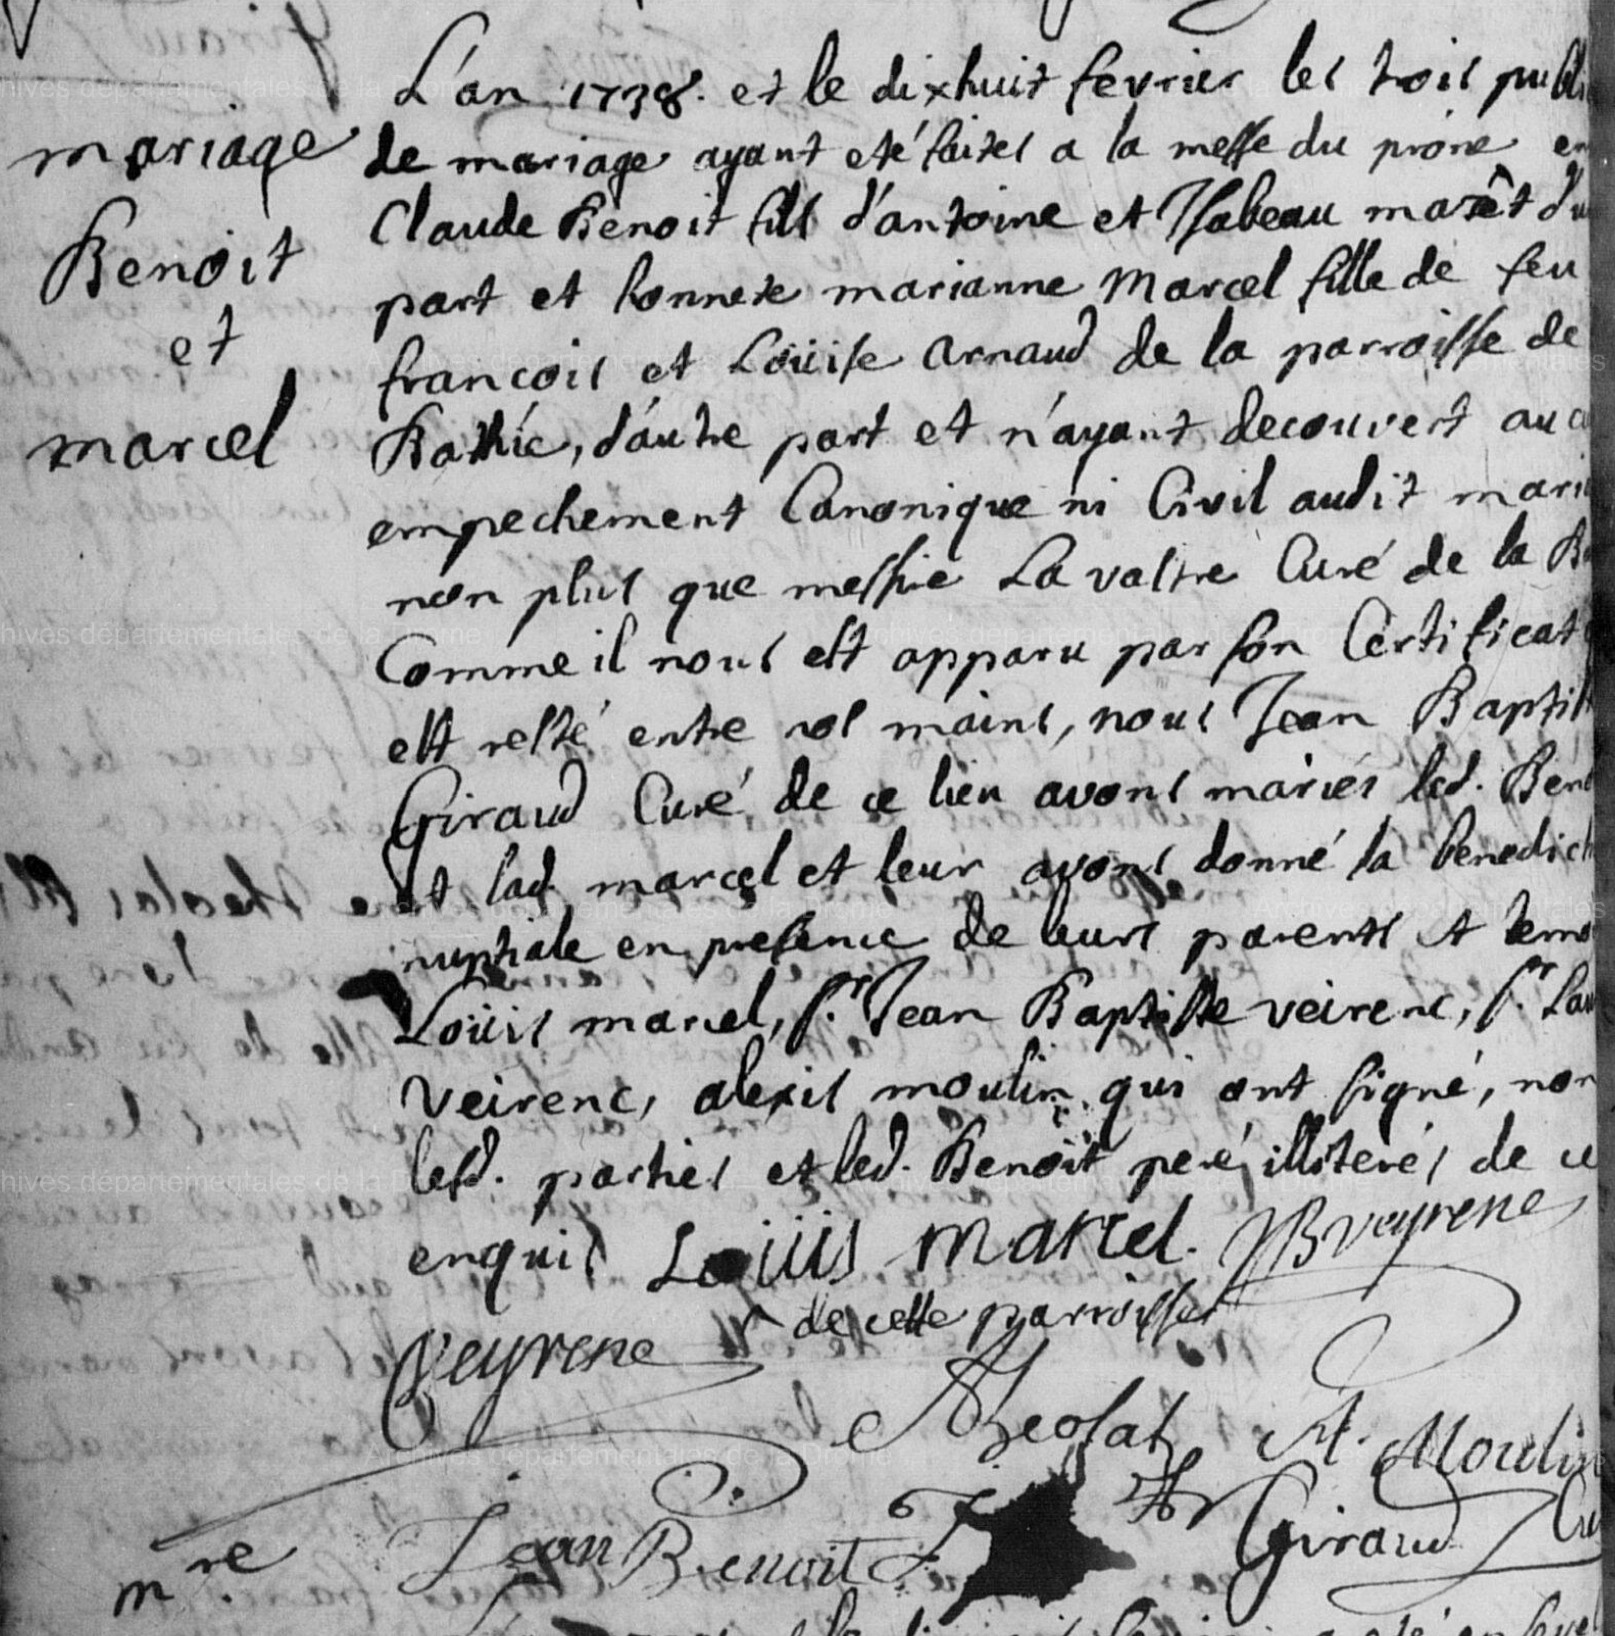 mariage
Benoit
et
marcel
L'an 1738. et le dixhuit fevrier les trois publi
de mariage ayant eté faites a la messe du prône en
Claude Benoit fils d'antoine et Isabeau marêt d'u
part et honnete marianne Marcel fille de feu
francois et Loüise arnaud de la parroisse de
d'autre part et n'ayant decouvert auc
empechement Canonique ni Civil audit mari
non plus que messire La valtre Curé de la B
Comme il nous est apparu par son Certificat
est resté entre nos mains, nous Jean Baptist
Giraud Curé de ce lieu avons mariés led. Ben
et lad. marcel et leur avons donné la benedict
nuptiale en presence de leurs parents et temo
Loüis marcel, sr. Jean Baptiste veirenc, sr. Lau
veirenc, alexis moulin qui ont signé, non
lesd. parties et led. Benoit peré illiterés de ce
enquis Loüis marcel. JB veyrene
de cette parroisse
veyrene
A. Moulin
Jean Benoit
Giraud Cu
mre